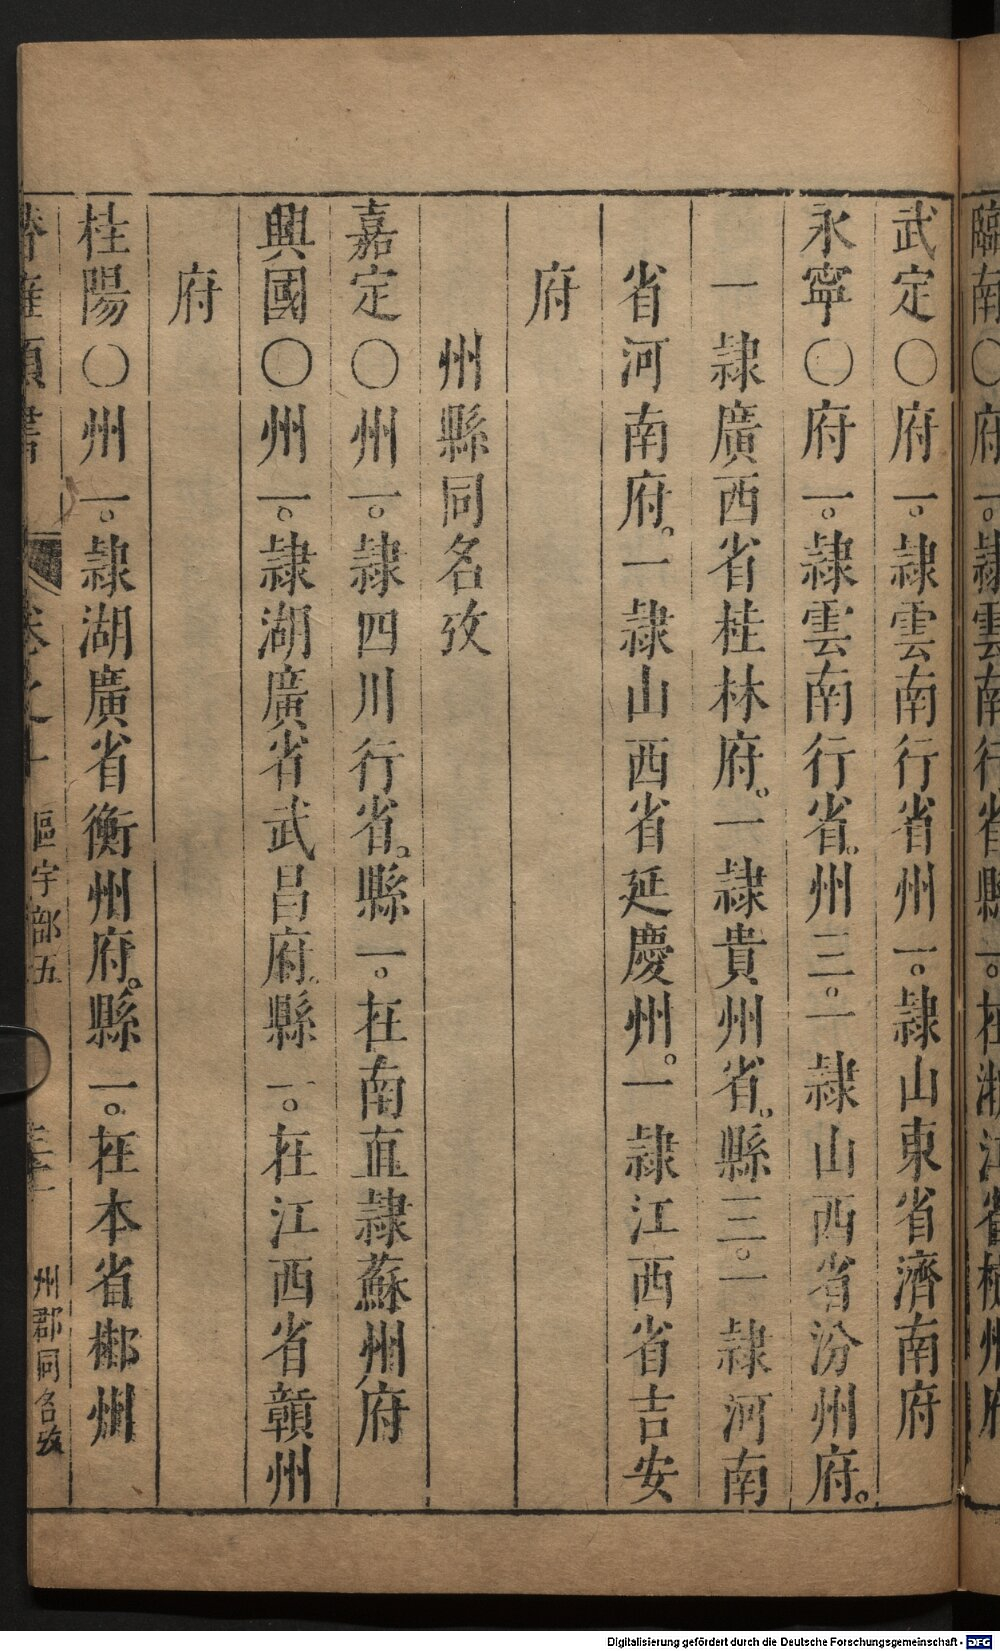 臨南〇府一。隸雲南行省縣一。在浙江省
武定〇府一。隸雲南行省州一。隸山東省濟南府
永寧〇府一。隸雲南行省。州三。一隸山西省汾州府。
一隸廣西省桂林府。一隸貴州省。縣三。一隸河南
省河南府。一隸山西省延慶州。一隸江西省吉安
府
州縣同名攷
嘉定〇州一。隸四川行省。縣一。在南直隸蘇州府
興國〇州一。隸湖廣省武昌府。縣一。在江西省贛州
府
桂陽〇州一。隸湖廣省衡州府。縣一。在本省郴州
卷之十 區宇部五 州郡同名攷
Digitalisierung gefördert durch die Deutsche Forschungsgemeinschaft - DFG